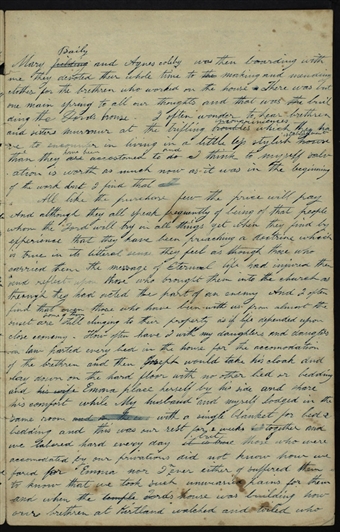 Baily
Mary and Agnes coleby was then boarding with
me they devoted their whole time to making and mending
clothes for the brethren who worked on the house There was but
one main spring to all our thoughts and that was the buil
ding the Lords house I often wonder to hear brethren
and sisters murmur at the trifling which they ha
ve to encounter in living in a little less stylish house
than they are accustomed to do and I think to myself salv
ation is worth as much now as it was in the beginning
of the work but I find that
All like the purchase few the price will pay
And although they all speak frequently of being of that people
whom the Lord will try in all things yet when they find by
experience that they have been preaching a doctrine which
is true in its literal sense they feel as though those who
carried them the message of eternal life had injured them
and those who brought them into the church as
though they had acted the part of an enemy And I often
find that those who have been with us from almost the
first are still clinging to their property as if life depended upon
close economy. How often have I with my daughters and daughter
in law parted every bed in the house for the accomodation
of the brethren and then Joseph would take his cloak and
lay down on the hard floor with no other bed or bedding
and his wife Emma place herself by his side and share
his comfort while My husband and myself lodged in the
same room with a single blanket for bed &
bedding and this was our rest for 2 weeks together and
we labored hard every day but those who were
accomodated by our privations did not know how we
fared for Emma nor I ever either of suffered them
to know that we took such unwearied pains for them
and when the Lords house was building how
our brethren at Kirtland watched and toiled who